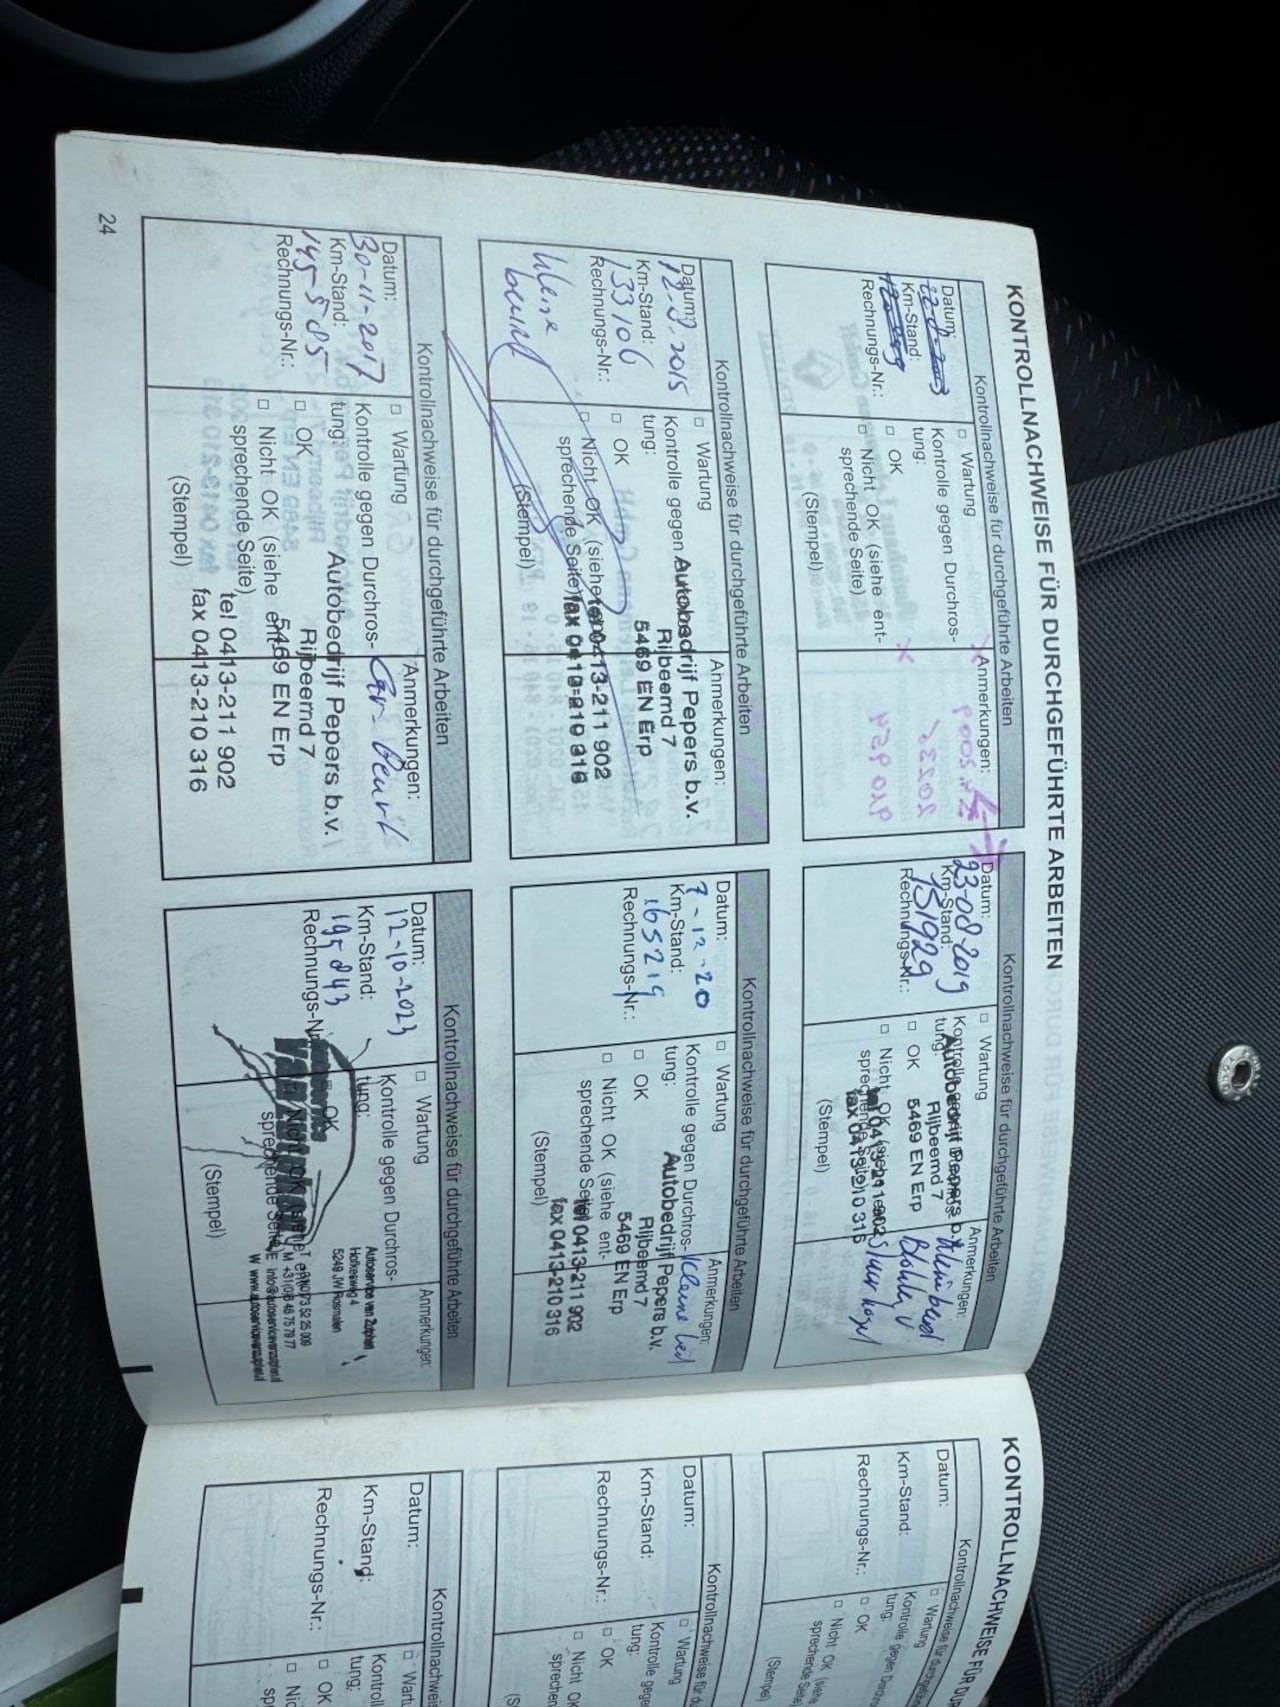 KONTROLLNACHWEISE FÜR DURCHGEFÜHRTE ARBEITEN
Kontrollnachweise für durchgeführte Arbeiten
Datum:
Km-Stand:
Rechnungs-Nr.:
□ Wartung
Kontrolle gegen Durchros-
tung:
□ OK
□ Nicht OK (siehe ent-
sprechende Seite)
(Stempel)
Anmerkungen:
Kontrollnachweise für durchgeführte Arbeiten
Datum:
12-9-2015
Km-Stand:
133106
Rechnungs-Nr.:
kleine
beurt
□ Wartung
Kontrolle gegen
tung:
□ OK
□ Nicht OK (siehe
sprechende Seite)
(Stempel)
Anmerkungen:
Autobedrijf Pepers b.v.
Rijbeemd 7
5469 EN Erp
tel 0413-211 902
fax 0413-210 316
Kontrollnachweise für durchgeführte Arbeiten
Datum:
30-11-2017
Km-Stand:
145-585
Rechnungs-Nr.:
□ Wartung
Kontrolle gegen Durchros-
tung:
□ OK
□ Nicht OK (siehe ent-
sprechende Seite)
(Stempel)
Anmerkungen:
beurt
Autobedrijf Pepers b.v.
Rijbeemd 7
5469 EN Erp
tel 0413-211 902
fax 0413-210 316
24
Kontrollnachweise für durchgeführte Arbeiten
Datum:
23-08-2019
Km-Stand:
151929
Rechnungs-Nr.:
□ Wartung
tung:
□ OK
□ Nicht OK
sprechende Seite)
(Stempel)
Anmerkungen:
Autobedrijf Pepers b.v.
Rijbeemd 7
5469 EN Erp
tel 0413-211 902
fax 0413-210 316
Kontrollnachweise für durchgeführte Arbeiten
Datum:
7-12-20
Km-Stand:
165219
Rechnungs-Nr.:
□ Wartung
Kontrolle gegen Durchros-
tung:
□ OK
□ Nicht OK (siehe ent-
sprechende Seite)
(Stempel)
Anmerkungen:
kleine
Autobedrijf Pepers b.v.
Rijbeemd 7
5469 EN Erp
tel 0413-211 902
fax 0413-210 316
Kontrollnachweise für durchgeführte Arbeiten
Datum:
12-10-2023
Km-Stand:
195843
Rechnungs-Nr.:
□ Wartung
Kontrolle gegen Durchros-
tung:
OK
Nicht OK
sprechende Seite
(Stempel)
Anmerkungen:
Autoservice van Zutphen
5249 JW Rosmalen
KONTROLLNACHWEISE FÜR DU
Kontrollnachweise für durchgefü
Datum:
Km-Stand:
Rechnungs-Nr.:
□ Wartung
Kontrolle gegen Durchro
tung:
□ OK
□ Nicht OK (siehe
sprechende Seite)
(Stempel)
Kontrollnachweise für du
Datum:
Km-Stand:
Rechnungs-Nr.:
□ Wartung
Kontrolle gege
tung:
□ OK
□ Nicht OK
sprechen
(S
Kontrollnachweis
Datum:
Km-Stand:
Rechnungs-Nr.:
□ Wart
Kontroll
tung:
□ OK
□ Nic
sp